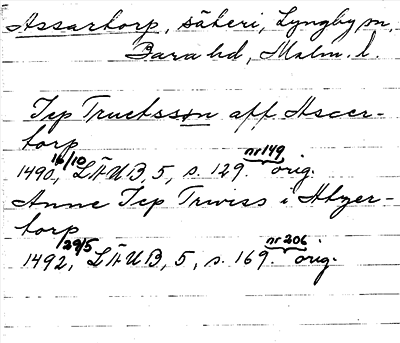 Assartorp, säteri, Lyngby sn,
Bara hd, Malm. l.
Jep Truetsson aff Ascer-
torp
1490 16/10, LÄUB, 5, s. 129. nr 149 orig.
Anne Jep Trwiss i Atzer-
torp
1492, 29/5 LÄUB, 5, s. 169. nr 206 orig.